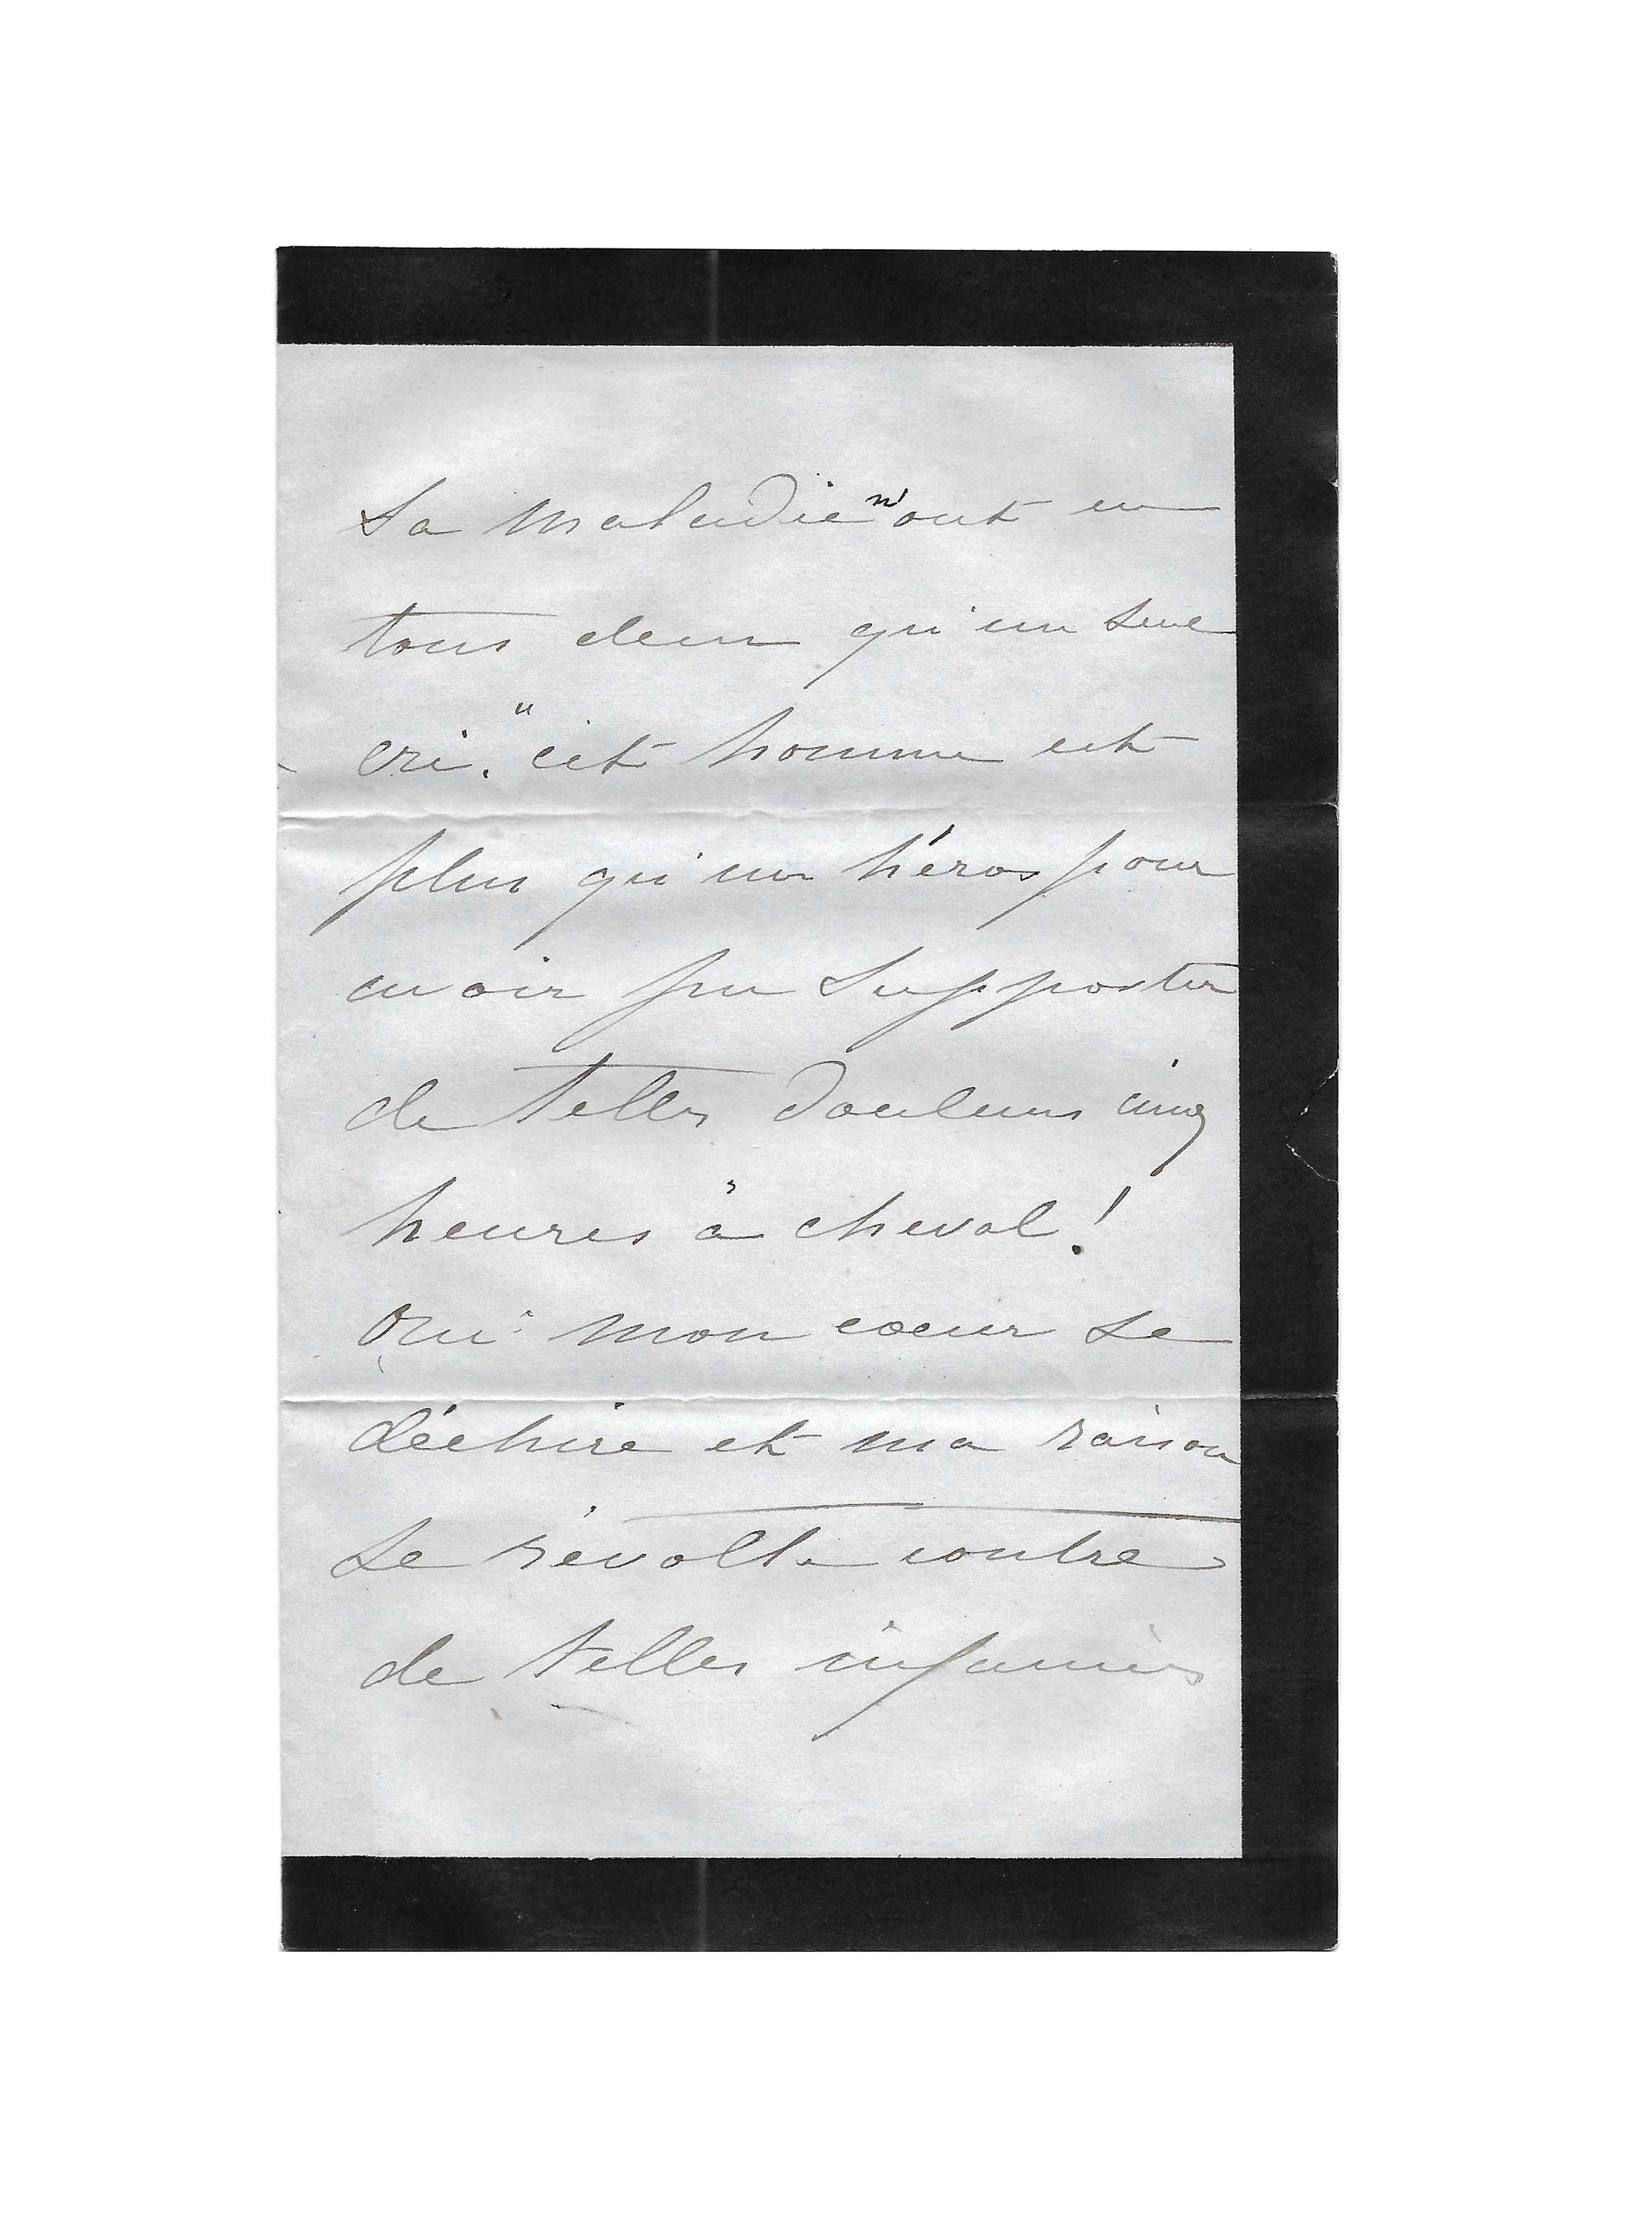 sa maladie n'ont eu
tous deux qu'un seul
cri. "cet homme est
plus qu'un héros pour
avoir pu supporter
de telles douleurs cinq
heures à cheval !
Oui mon coeur se
déchire et ma raison
se révolte contre
de telles infamies